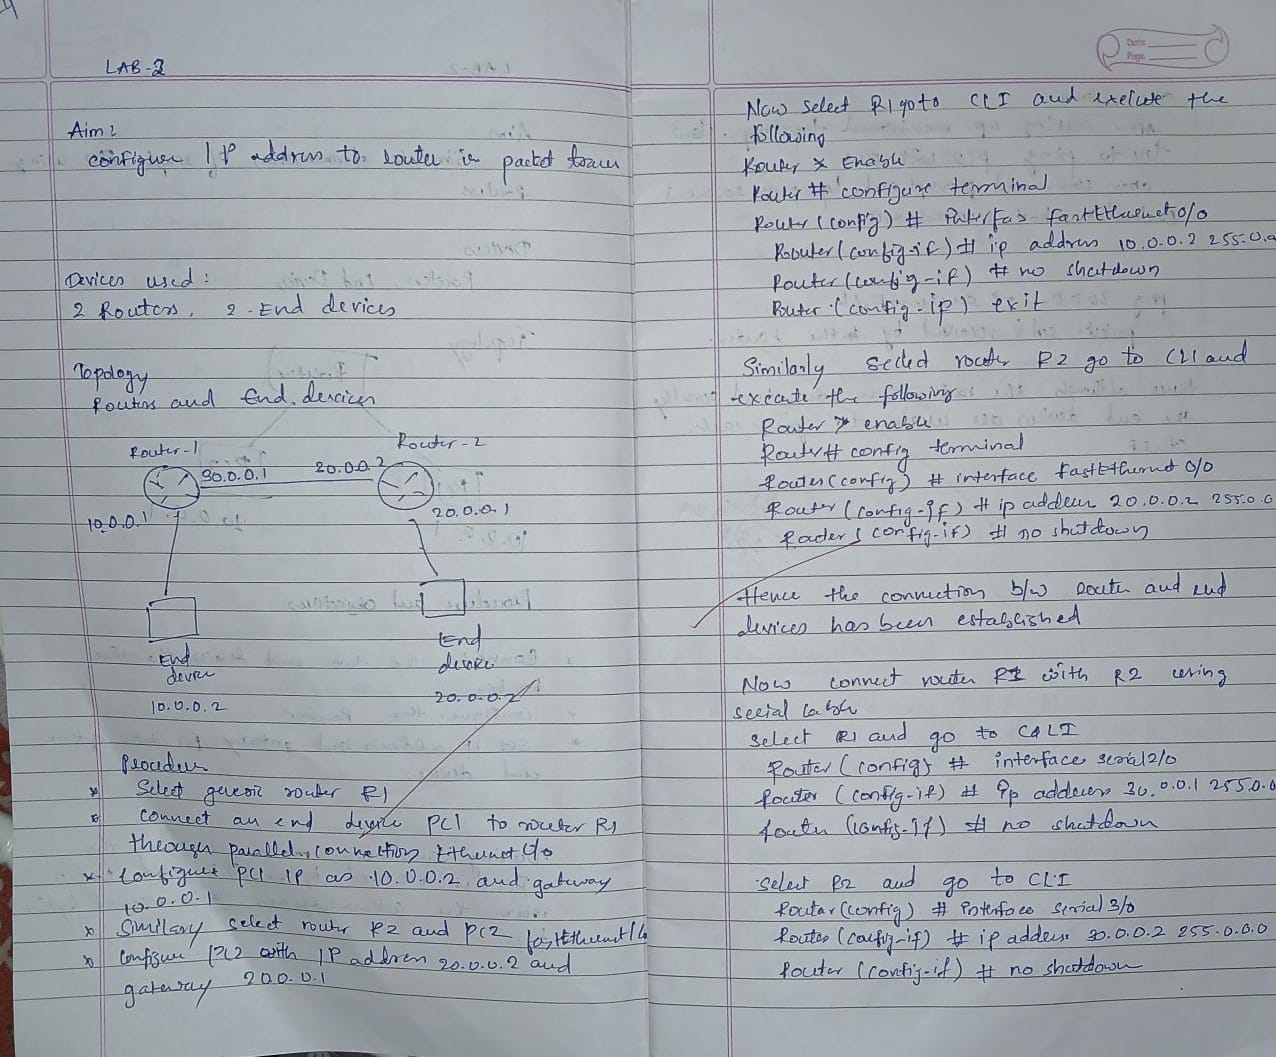 LAB-2
Aim:
configure IP address to router in packet tracer
Devices used:
2 Routers, 2-End devices
Topology
Routers and End devices
Router-1
Router-2
30.0.0.1
20.0.0.2
10.0.0.1
20.0.0.1
End
device
10.0.0.2
End
device
20.0.0.2
Procedure
Select generic router R1
connect an end device PC1 to router R1
through parallel connection Ethernet
configure PC1 IP as 10.0.0.2 and gateway
10.0.0.1
Similary select router R2 and PC2 fastEthernet
configure PC2 with IP address 20.0.0.2 and
gateway 20.0.0.1
Date
Page
Now select R1 go to CLI and execute the
following
Router > Enable
Router # configure terminal
Router (config) # Interface fastEthernet 0/0
Router (config-if) # ip address 10.0.0.2 255.0.0
Router (config-if) # no shutdown
Router (config-ip) exit
Similarly select router R2 go to CLI and
execute the following
Router > enable
Router # config terminal
Router (config) # interface fastEthernet 0/0
Router (config-if) # ip address 20.0.0.2 255.0.0
Router (config-if) # no shutdown
Hence the connection b/w router and end
devices has been established
Now connect router R1 with R2 using
serial cable
select R1 and go to CLI
Router (config) # interface serial 2/0
Router (config-if) # ip address 30.0.0.1 255.0.0
Router (config-if) # no shutdown
select R2 and go to CLI
Router (config) # interface serial 3/0
Router (config-if) # ip address 30.0.0.2 255.0.0.0
Router (config-if) # no shutdown